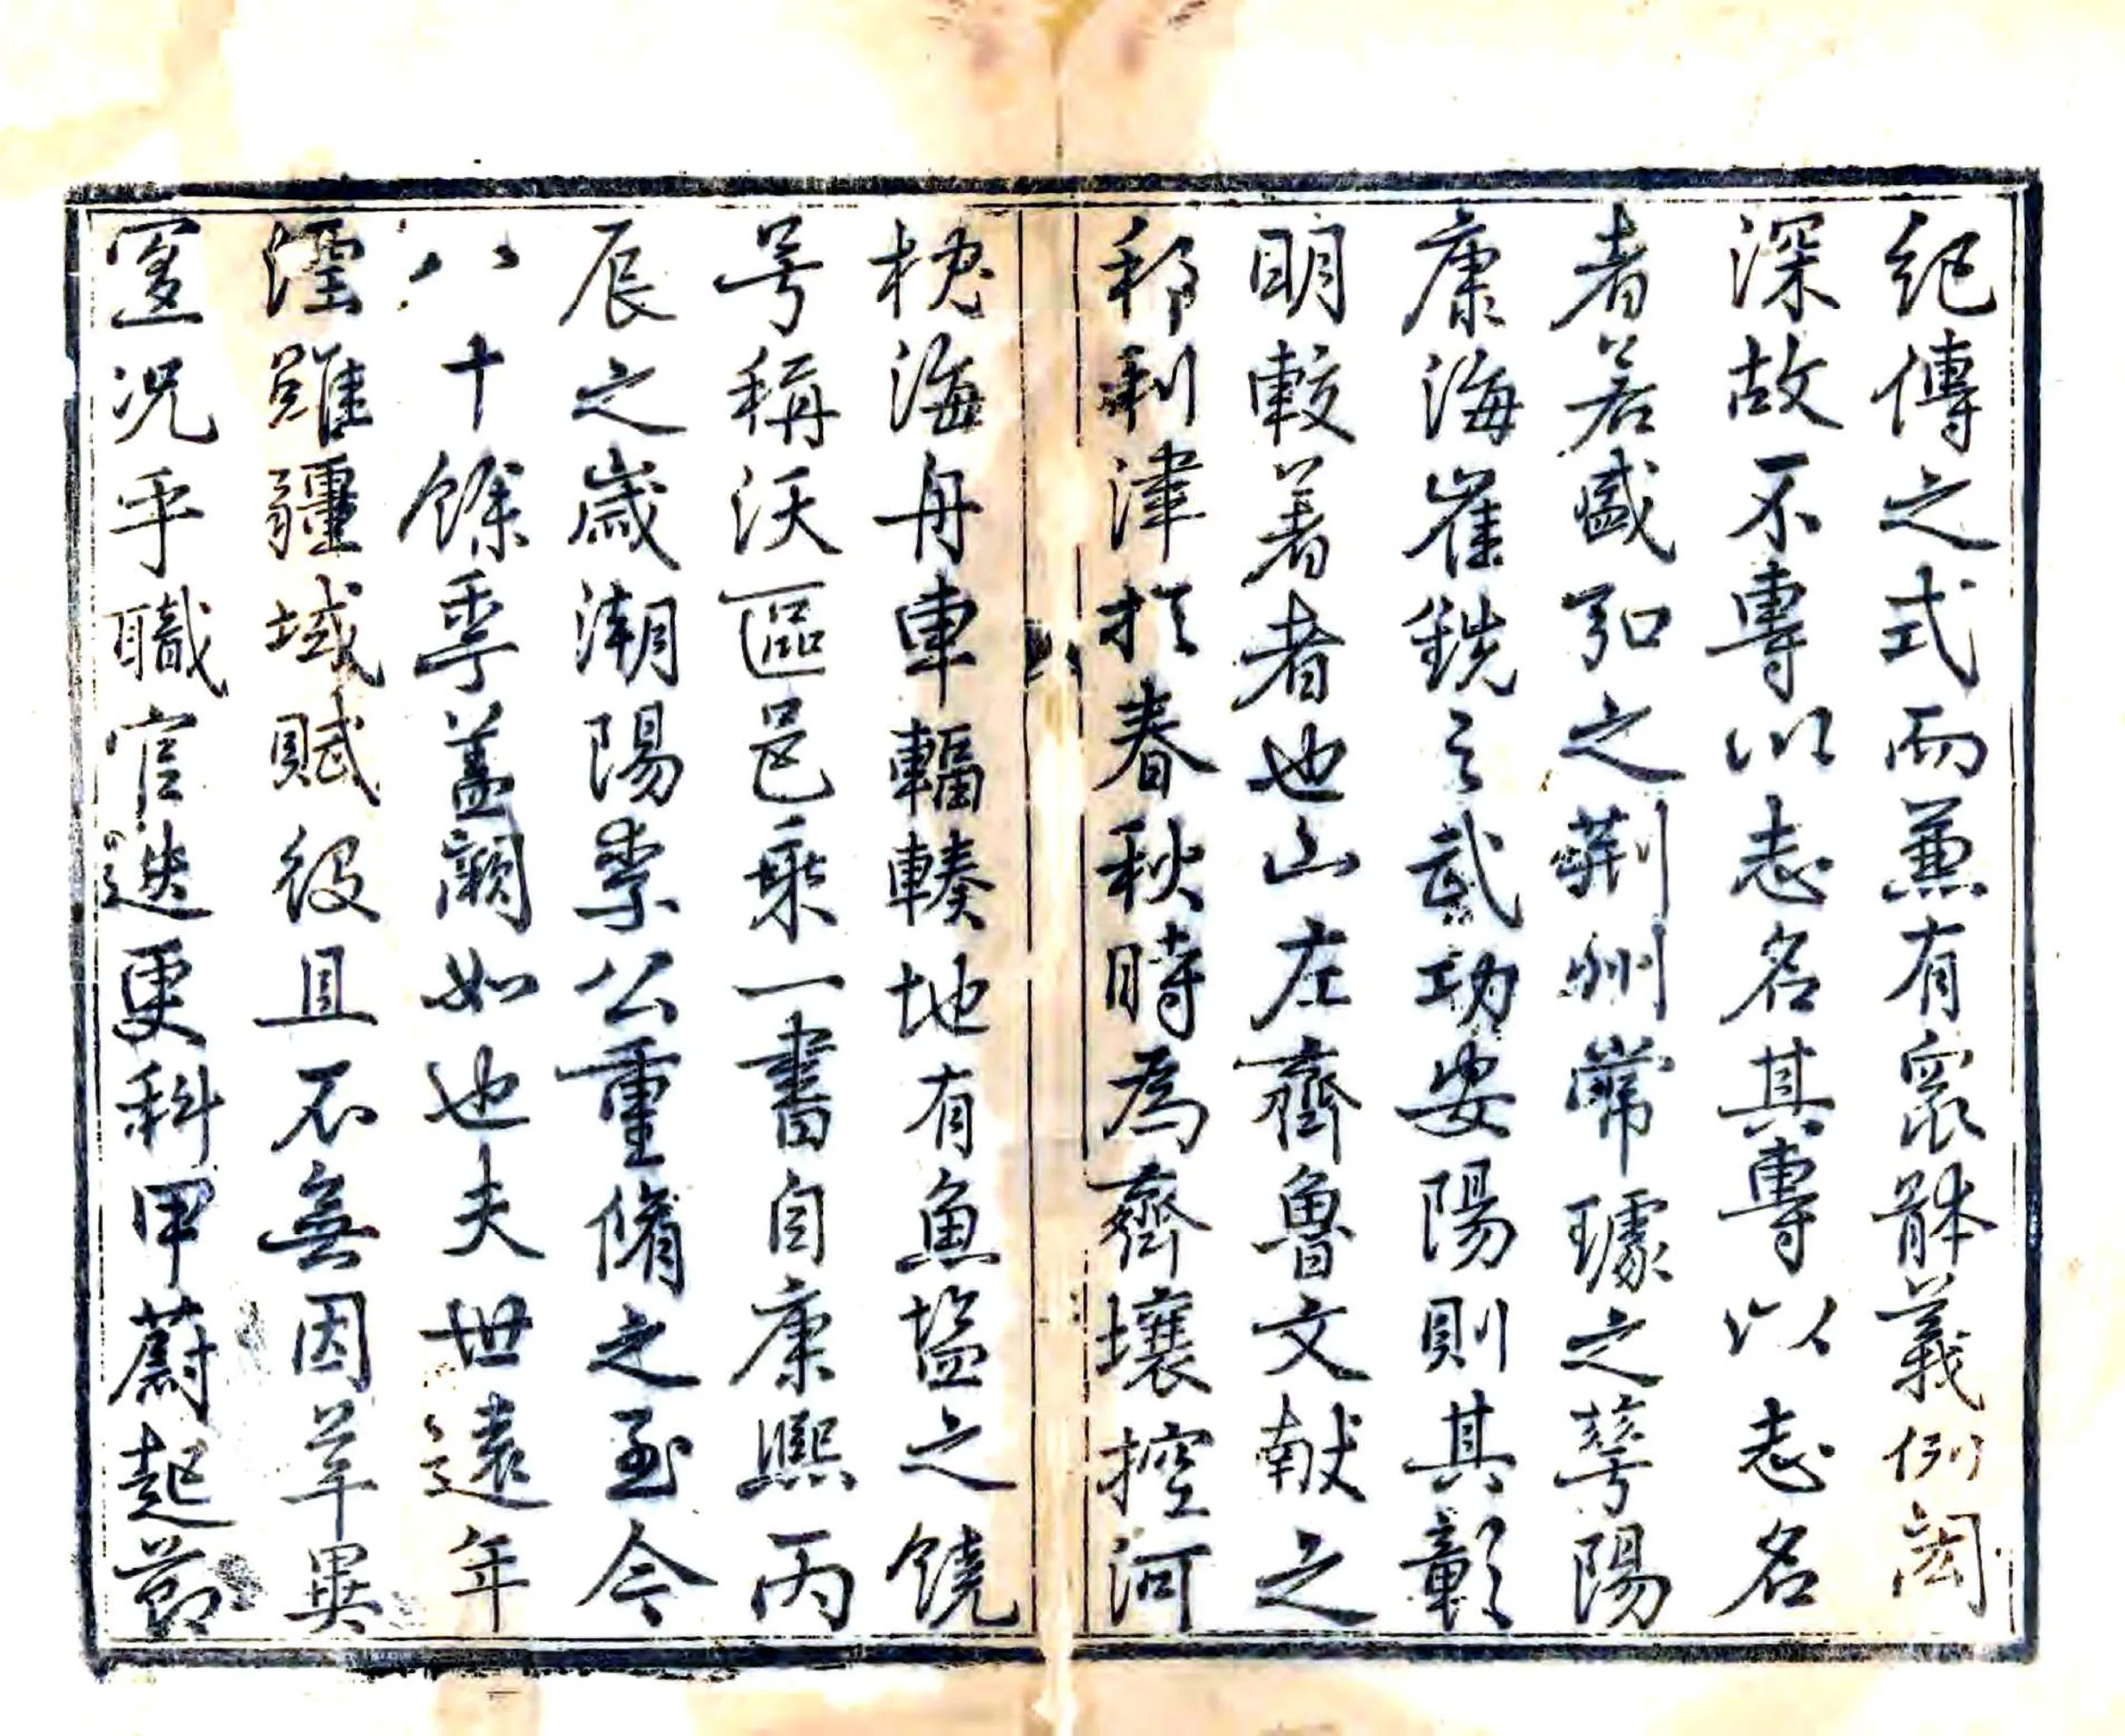 紀傳之式而蕭有眾體義例閎
深故不專以志名其專以志名
者若盛弘之荊州常璩之華陽
康海崔銑之武功安陽則其彰
明較著者也山左齊魯文献之
邦利津於春秋時為齊壤控河
枕海舟車輻輳地有魚塩之饒
号稱沃區邑乘一書自康熙丙
辰之歲潮陽李公重脩之至今
八十餘季盖闕如也夫世遠年
湮雖疆域賦役且不無因革異
宜况乎職官迭更科甲蔚起節